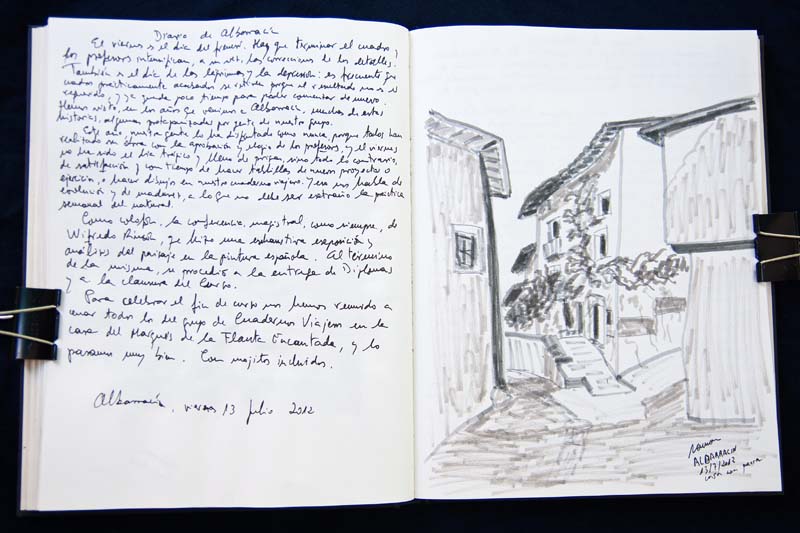 Diario de Albarracín
El viernes es el día del frenesí. Hay que terminar el cuadro y
los profesores intensifican, a su vez, las correcciones de los detalles.
También es el día de las lágrimas y la depresión: es frecuente que
cuadros prácticamente acabados se retiren porque el resultado no es el
requerido, y ya queda poco tiempo para poder comenzar de nuevo.
Hemos visto, en los años que venimos a Albarracín, muchas de estas
historias, algunas protagonizadas por gente de nuestro grupo.
Este año, nuestra gente lo ha disfrutado como nunca porque todos han
realizado su obra con la aprobación y elogio de los profesores, y el viernes
no ha sido el día trágico y lleno de prisas, sino todo lo contrario,
de satisfacción y con tiempo de hacer tablillas de nuevos proyectos o
ejercicios o hacer dibujos en nuestro cuaderno viajero. Y eso nos habla de
evolución y de madurez, a lo que no debe ser extraño la práctica
semanal del natural.
Como colofón, la conferencia, magistral, como siempre, de
Wifredo Rincón, que hizo una exhaustiva exposición y
análisis del paisaje en la pintura española. Al término
de la misma, se procedió a la entrega de Diplomas
y a la clausura del Curso.
Para celebrar el fin de curso nos hemos reunido a
cenar todos los del grupo de Cuadernos Viajeros en la
casa del Marqués de la Flauta Encantada, y lo
pasamos muy bien. Con mojitos incluidos.
Albarracín, viernes 13 julio 2012
ALBARRACIN
13/7/2012
casa con parra